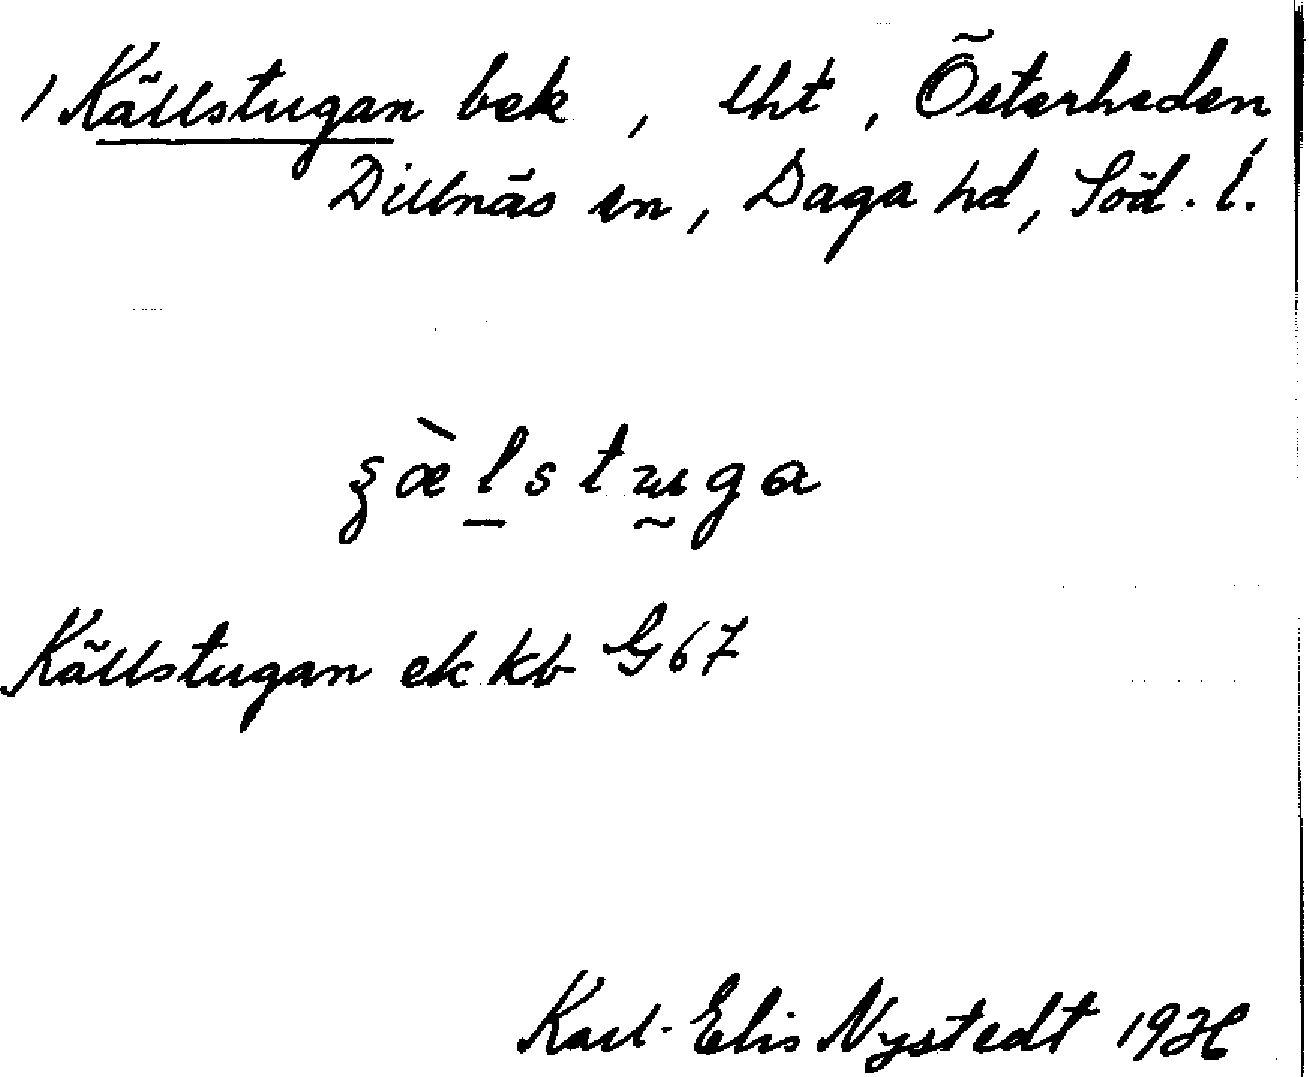 1 Källstugan bek, lht, Österheden,
Dillnäs sn, Daga hd, Söd. l.
ʂæ̀l̲stṵga
Källstugan ek kb G67
Karl-Elis Nystedt